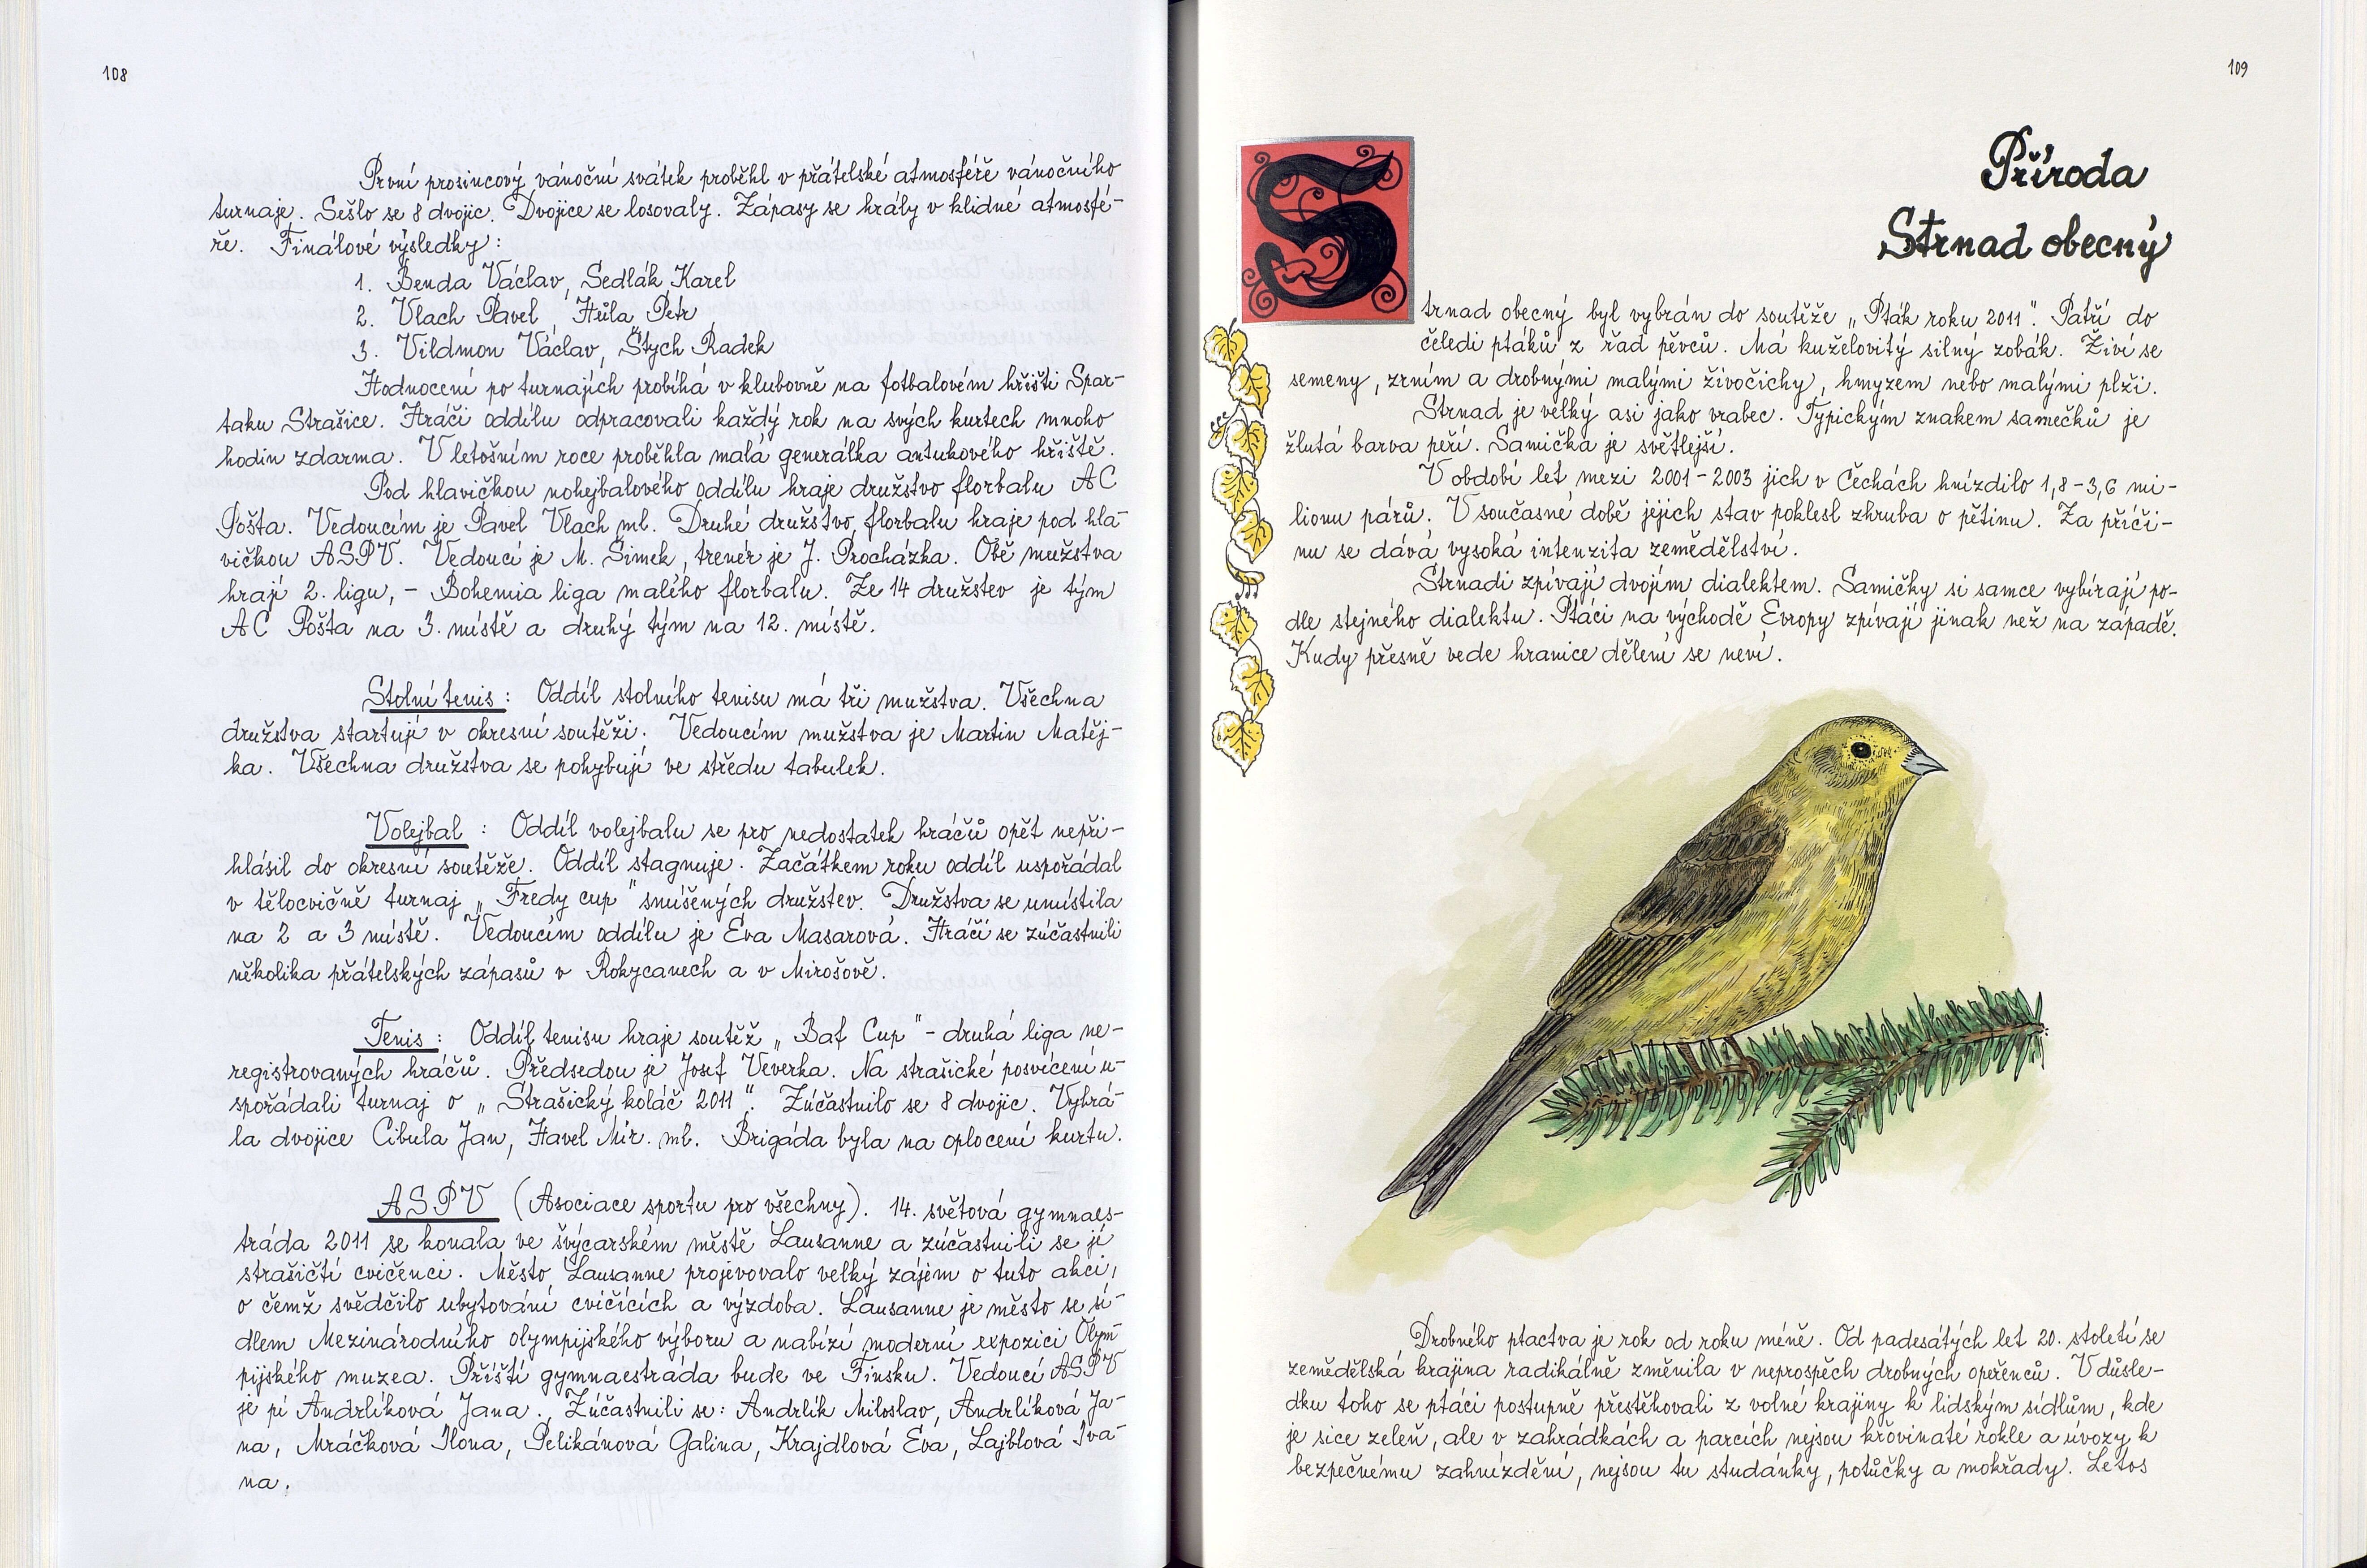 108
První prosincový vánoční svátek proběhl v přátelské atmosféře vánočního
turnaje. Sešlo se 8 dvojic. Dvojice se losovaly. Zápasy se hrály v klidné atmosfé-
ře. Finálové výsledky:
1. Benda Václav, Sedlák Karel
2. Vlach Pavel, Hůla Petr
3. Vildmon Václav, Štych Radek
Hodnocení po turnajích probíhá v klubovně na fotbalovém hřišti Spar-
taku Strašice. Hráči oddílu odpracovali každý rok na svých kurtech mnoho
hodin zdarma. V letošním roce proběhla malá generálka antukového hřiště.
Pod hlavičkou nohejbalového oddílu hraje družstvo florbalu AC
Pošta. Vedoucím je Pavel Vlach ml. Druhé družstvo florbalu hraje pod hla-
vičkou ASPV. Vedoucí je M. Šimek, trenér je J. Procházka. Obě mužstva
hrají 2. ligu, - Bohemia liga malého florbalu. Ze 14 družstev je tým
AC Pošta na 3. místě a druhý tým na 12. místě.
Stolní tenis: Oddíl stolního tenisu má tři mužstva. Všechna
družstva startují v okresní soutěži. Vedoucím mužstva je Martin Matěj-
ka. Všechna družstva se pohybují ve středu tabulek.
Volejbal : Oddíl volejbalu se pro nedostatek hráčů opět nepři-
hlásil do okresní soutěže. Oddíl stagnuje. Začátkem roku oddíl uspořádal
v tělocvičně turnaj „Fredy cup" smíšených družstev. Družstva se umístila
na 2 a 3 místě. Vedoucím oddílu je Eva Masarová. Hráči se zúčastnili
několika přátelských zápasů v Rokycanech a v Mirošově.
Tenis: Oddíl tenisu hraje soutěž „Baf Cup" - druhá liga ne-
registrovaných hráčů. Předsedou je Josef Veverka. Na strašické posvícení u-
spořádali turnaj o „Strašický koláč 2011". Zúčastnilo se 8 dvojic. Vyhrá-
la dvojice Cibula Jan, Havel Mir. ml. Brigáda byla na oplocení kurtu.
ASPV (Asociace sportu pro všechny). 14. světová gymnaes-
tráda 2011 se konala ve švýcarském městě Lausanne a zúčastnili se jí
strašičtí cvičenci. Město Lausanne projevovalo velký zájem o tuto akci,
o čemž svědčilo ubytování cvičících a výzdoba. Lausanne je město se sí-
dlem Mezinárodního olympijského výboru a nabízí moderní expozici Olym-
pijského muzea. Příští gymnaestráda bude ve Finsku. Vedoucí ASPV
je pí Andrlíková Jana. Zúčastnili se: Andrlík Miloslav, Andrlíková Ja-
na, Mráčková Ilona, Pelikánová Galina, Krajdlová Eva, Lajblová Iva-
na.
109
Příroda
Strnad obecný
Strnad obecný byl vybrán do soutěže „Pták roku 2011". Patří do
čeledi ptáků z řad pěvců. Má kuželovitý silný zobák. Živí se
semeny, zrním a drobnými malými živočichy, hmyzem nebo malými plži.
Strnad je velký asi jako vrabec. Typickým znakem samečků je
žlutá barva peří. Samička je světlejší.
V období let mezi 2001-2003 jich v Čechách hnízdilo 1,8-3,6 mi-
lionu párů. V současné době jejich stav poklesl zhruba o pětinu. Za příči-
nu se dává vysoká intenzita zemědělství.
Strnadi zpívají dvojím dialektem. Samičky si samce vybírají po-
dle stejného dialektu. Ptáci na východě Evropy zpívají jinak než na západě.
Kudy přesně vede hranice dělení se neví.
Drobného ptactva je rok od roku méně. Od padesátých let 20. století se
zemědělská krajina radikálně změnila v neprospěch drobných opeřenců. V důsle-
dku toho se ptáci postupně přestěhovali z volné krajiny k lidským sídlům, kde
je sice zeleň, ale v zahrádkách a parcích nejsou křovinaté rokle a úvozy k
bezpečnému zahnízdění, nejsou tu studánky, potůčky a mokřady. Letos